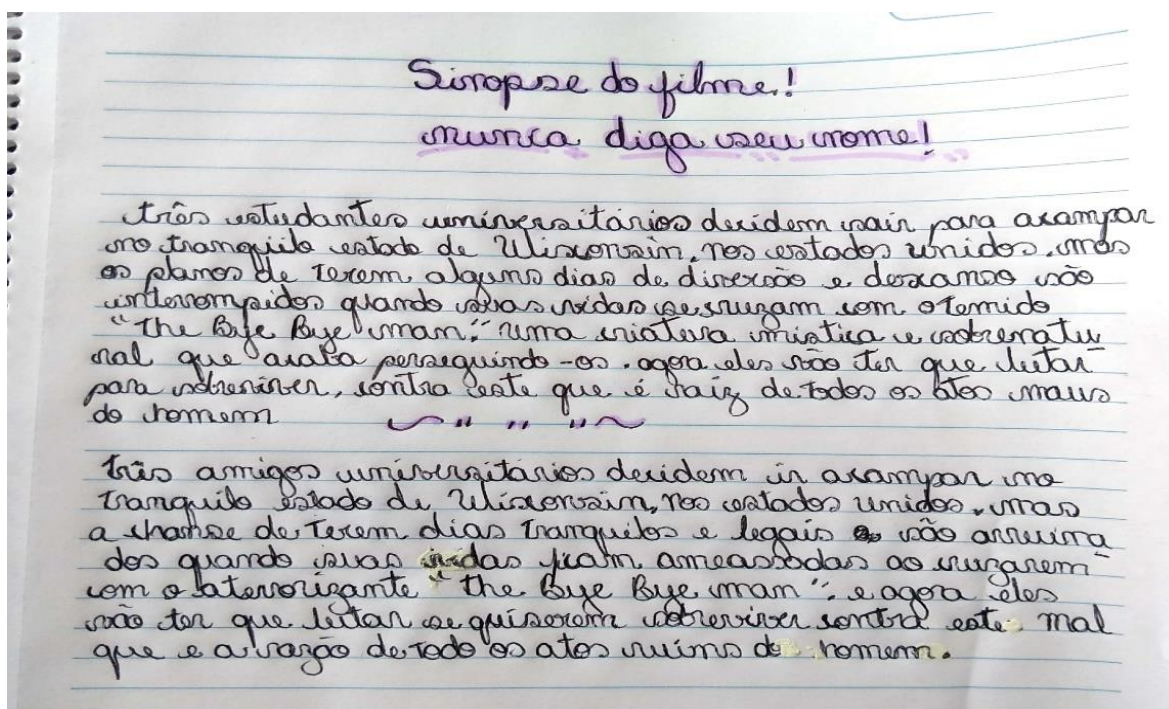 Sinopse do filme!
nunca diga seu nome!
três estudantes universitários decidem sair para acampar
no tranquilo estado de Wisconsin, nos estados unidos. mas
os planos de terem, alguns dias de diversão e descanso são
interrompidos quando suas vidas se cruzam com o temido
"The Bye Bye man", uma criatura mistica e sobrenatu
ral que acaba perseguindo-os. agora eles vão ter que lutar
para sobreviver, contra este que é raiz de todos os atos maus
do homem
três amigos universitários decidem ir acampar no
tranquilo estado de Wisconsin, nos estados unidos, mas
a chanse de terem dias tranquilos e legais são arruina
dos quando suas vidas ficam ameassadas ao cruzarem
com o aterrorizante "the Bye Bye man", e agora eles
vão ter que lutar se quiserem sobreviver contra este mal
que e a razão de todo os atos ruims do homem.